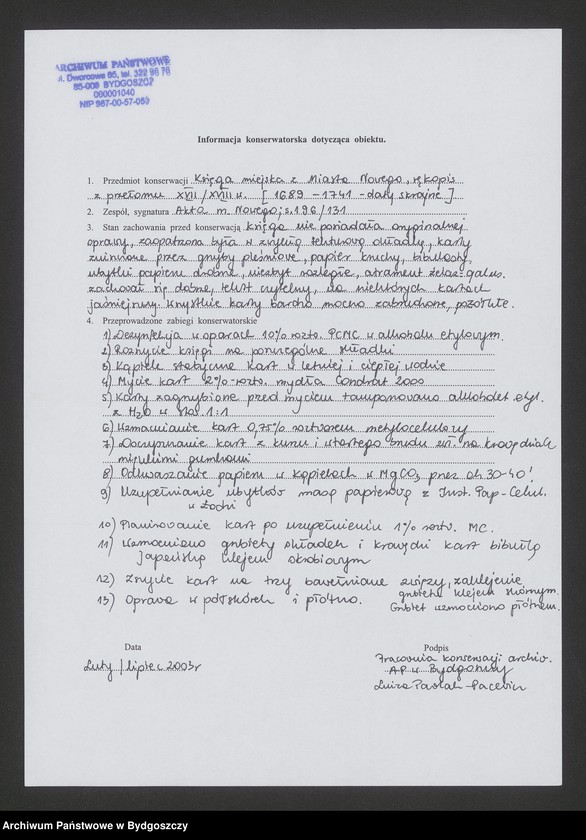 ARCHIWUM PAŃSTWOWE
ul. Dworcowa 65, tel. 322 96 76
85-009 BYDGOSZCZ
000001040
NIP 967-00-57-059
Informacja konserwatorska dotycząca obiektu.
1. Przedmiot konserwacji Księga miejska z Miasta Nowego, rękopis
z przełomu XVII/XVIII w. [1689 – 1741 – daty skrajne]
2. Zespół, sygnatura Akta m. Nowego; s. 196/131
3. Stan zachowania przed konserwacją księga nie posiadała oryginalnej
oprawy, zaopatrzona była w zwykłą tekturową okładkę, karty
zniszczone przez grzyby pleśniowe, papier kruchy, bibulasty,
ubytki papieru drobne, niezbyt rozległe, atrament żelaz.-galus.
zachował się dobrze, tekst czytelny, na niektórych kartach
jaśniejszy. Wszystkie karty bardzo mocno zabrudzone, pożółkłe.
4. Przeprowadzone zabiegi konserwatorskie
1) Dezynfekcja w oparach 10% roztw. PCMC w alkoholu etylowym.
2) Rozszycie księgi na poszczególne składki
3) Kąpiele statyczne kart w letniej i ciepłej wodzie
4) Mycie kart 2%-roztw. mydła Contrat 2000
5) Karty zagrzybione przed myciem tamponowano alkoholem etyl.
z H2O w stos. 1:1
6) Wzmacnianie kart 0,75% roztworem metylocelulozy
7) Doczyszczanie kart z kurzu i utartego brudu zwł. na krawędziach
miękkimi gumkami
8) Odkwaszanie papieru w kąpielach w MgCO3 przez ok. 30-40'
9) Uzupełnianie ubytków masą papierową z Inst. Pap-Celul.
w Łodzi
10) Planirowanie kart po uzupełnieniu 1% roztw. MC.
11) Wzmocniono grzbiety składek i krawędzi kart bibułką
japońską klejem skrobiowym
12) Zszycie kart na trzy bawełniane zwięzy, zaklejenie
grzbietu klejem skórnym.
13) Oprawa w półskórek i płótno. Grzbiet wzmocniono płótnem.
Data Podpis
Luty / lipiec 2003r Pracownia konserwacji archiw.
AP w Bydgoszczy
Luiza Pacewicz
Archiwum Państwowe w Bydgoszczy